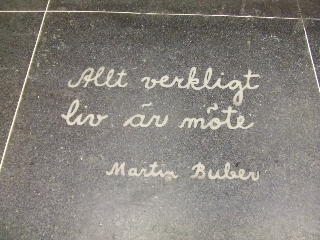 Allt verkligt
liv är möte
Martin Buber